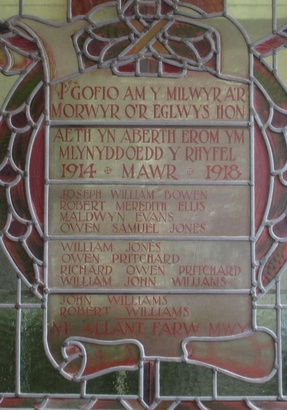 I GOFIO AM Y MILWYR A'R
MORWYR O'R EGLWYS HON
AETH YN ABERTH EROM YM
MLYNYDDOEDD Y RHYFEL
1914 · MAWR · 1918
JOSEPH WILLIAM BOWEN
ROBERT MEREDITH ELLIS
MALDWYN EVANS
OWEN SAMUEL JONES
WILLIAM JONES
OWEN PRITCHARD
RICHARD OWEN PRITCHARD
WILLIAM JOHN WILLIAMS
JOHN WILLIAMS
ROBERT WILLIAMS
NI ALLANT FARW MWY